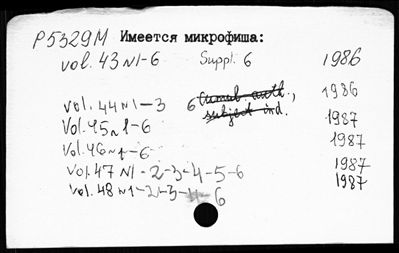 P5329M Имеется микрофиша:
vol. 43 N1-6 Suppl. 6 1986
vol. 44 N1-3 6 Cumul. auth., 1986
subject ind.
Vol. 45 N1-6 1987
Vol. 46 N1-6 1987
Vol. 47 N1-2-3-4-5-6 1987
Vol. 48 N1-2-3-4-6 1987